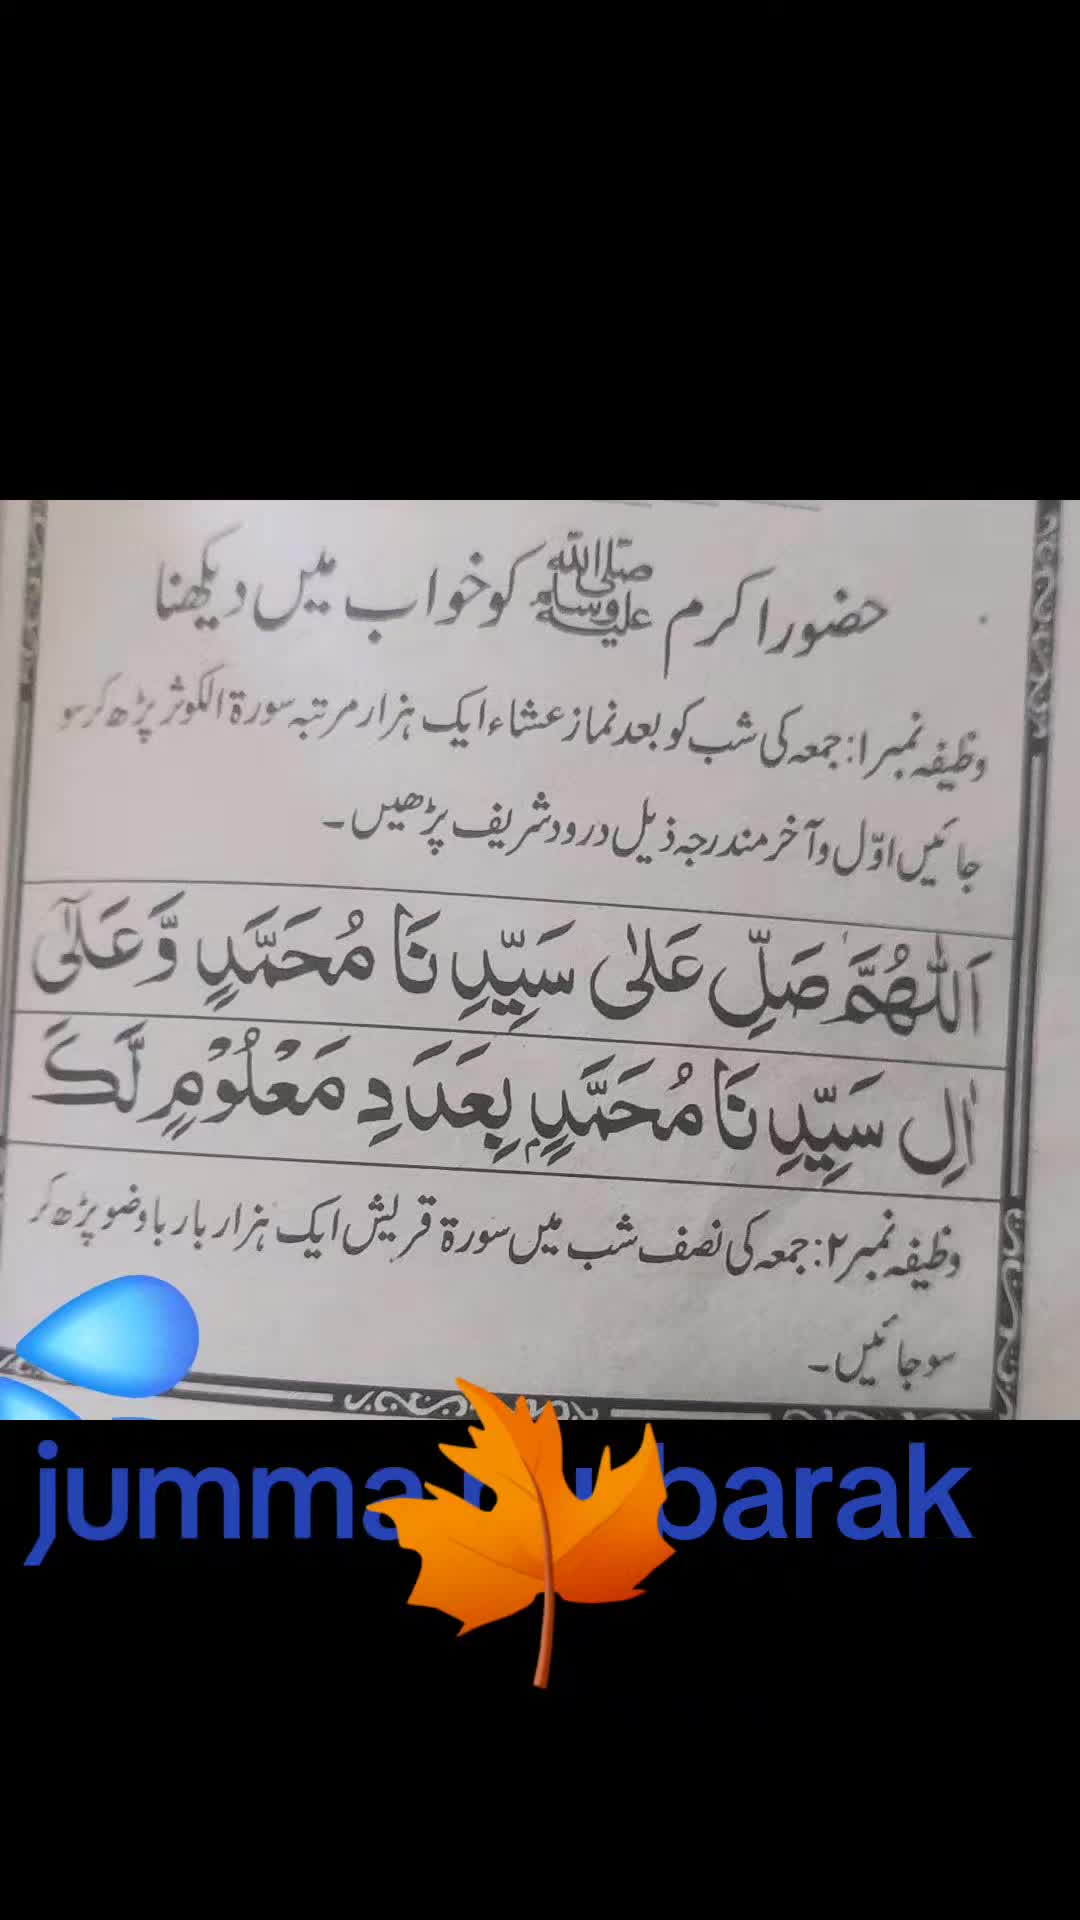 حضور اکرم ﷺ کو خواب میں دیکھنا
وظیفہ نمبر ۱: جمعہ کی شب کو بعد نماز عشاء ایک ہزار مرتبہ سورۃ الکوثر پڑھ کر سو
جائیں اوّل و آخر مندرجہ ذیل درود شریف پڑھیں۔
اَللّٰهُمَّ صَلِّ عَلٰى سَيِّدِنَا مُحَمَّدٍ وَّعَلٰٓى
اٰلِ سَيِّدِنَا مُحَمَّدٍۭ بِعَدَدِ مَعْلُوْمٍ لَّكَ
وظیفہ نمبر ۲: جمعہ کی نصف شب میں سورۃ قریش ایک ہزار بار باوضو پڑھ کر
سو جائیں۔
jumma mubarak